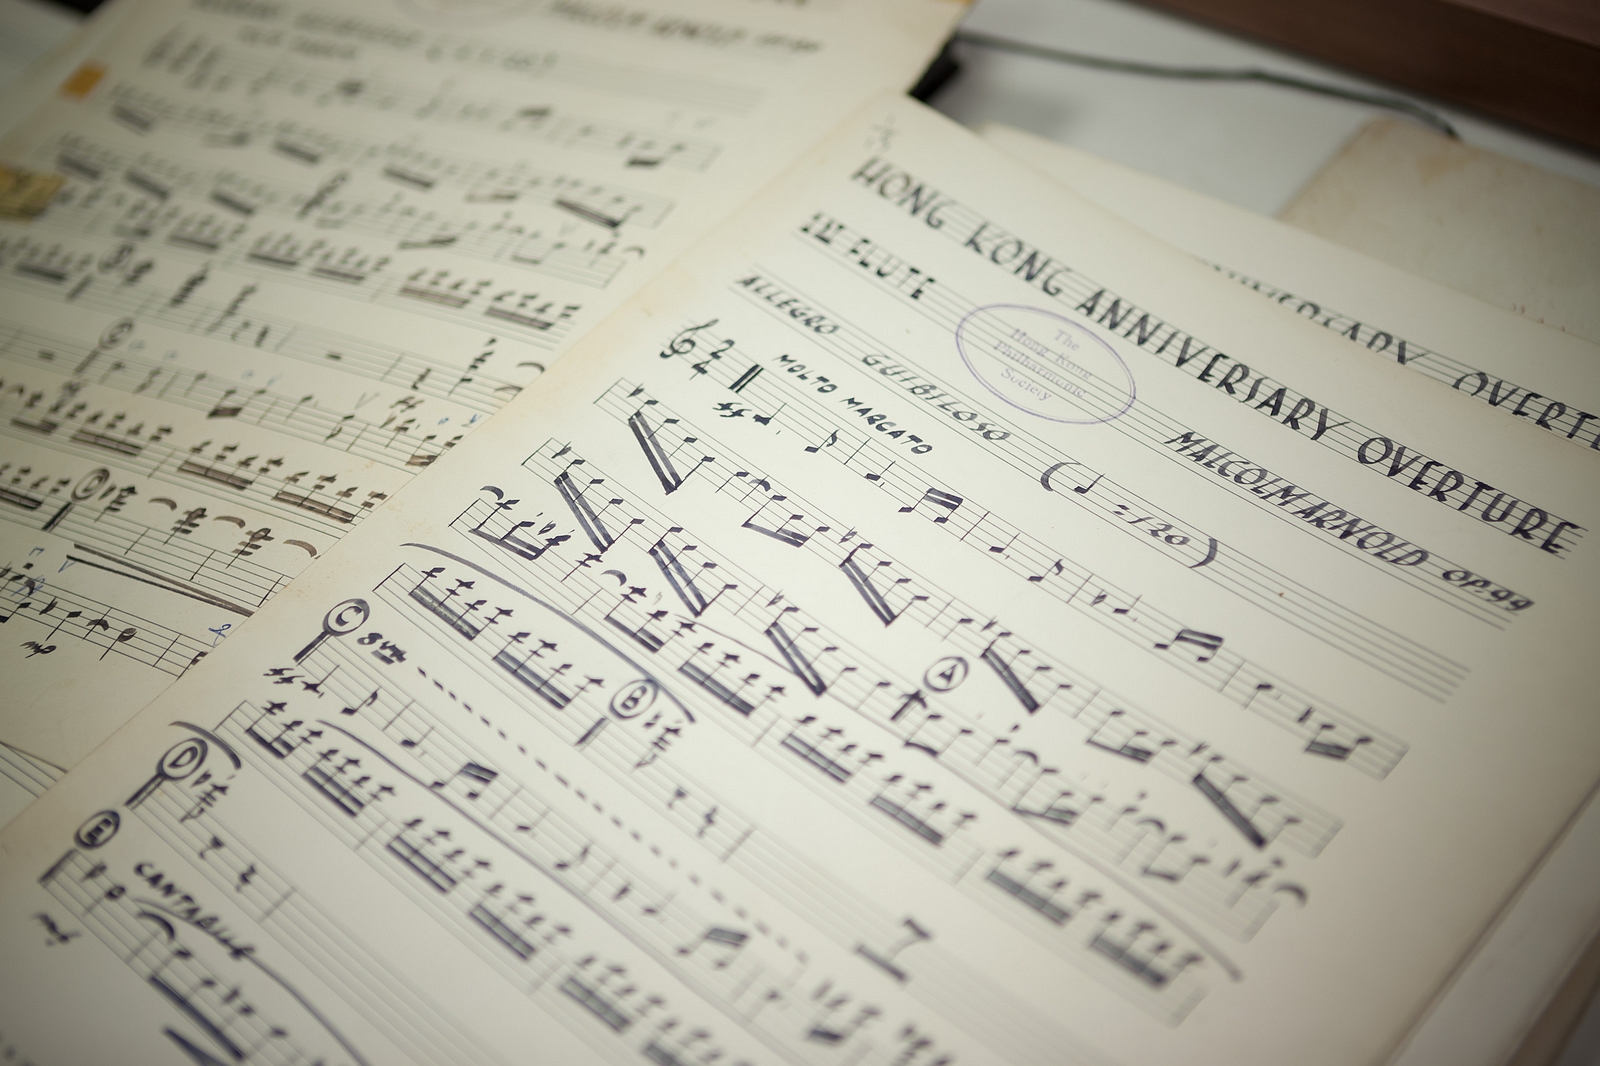 HONG KONG ANNIVERSARY OVERTURE
1ST FLUTE
MALCOLM ARNOLD OP.99
The
Hong Kong
Philharmonic
Society
ALLEGRO GUIBILOSO (♩=120)
MOLTO MARCATO
ff
A
B
C
8va
ff
D
E
CANTABILE
mf
OVERT
MALCOLM ARNOLD
C
D
mp